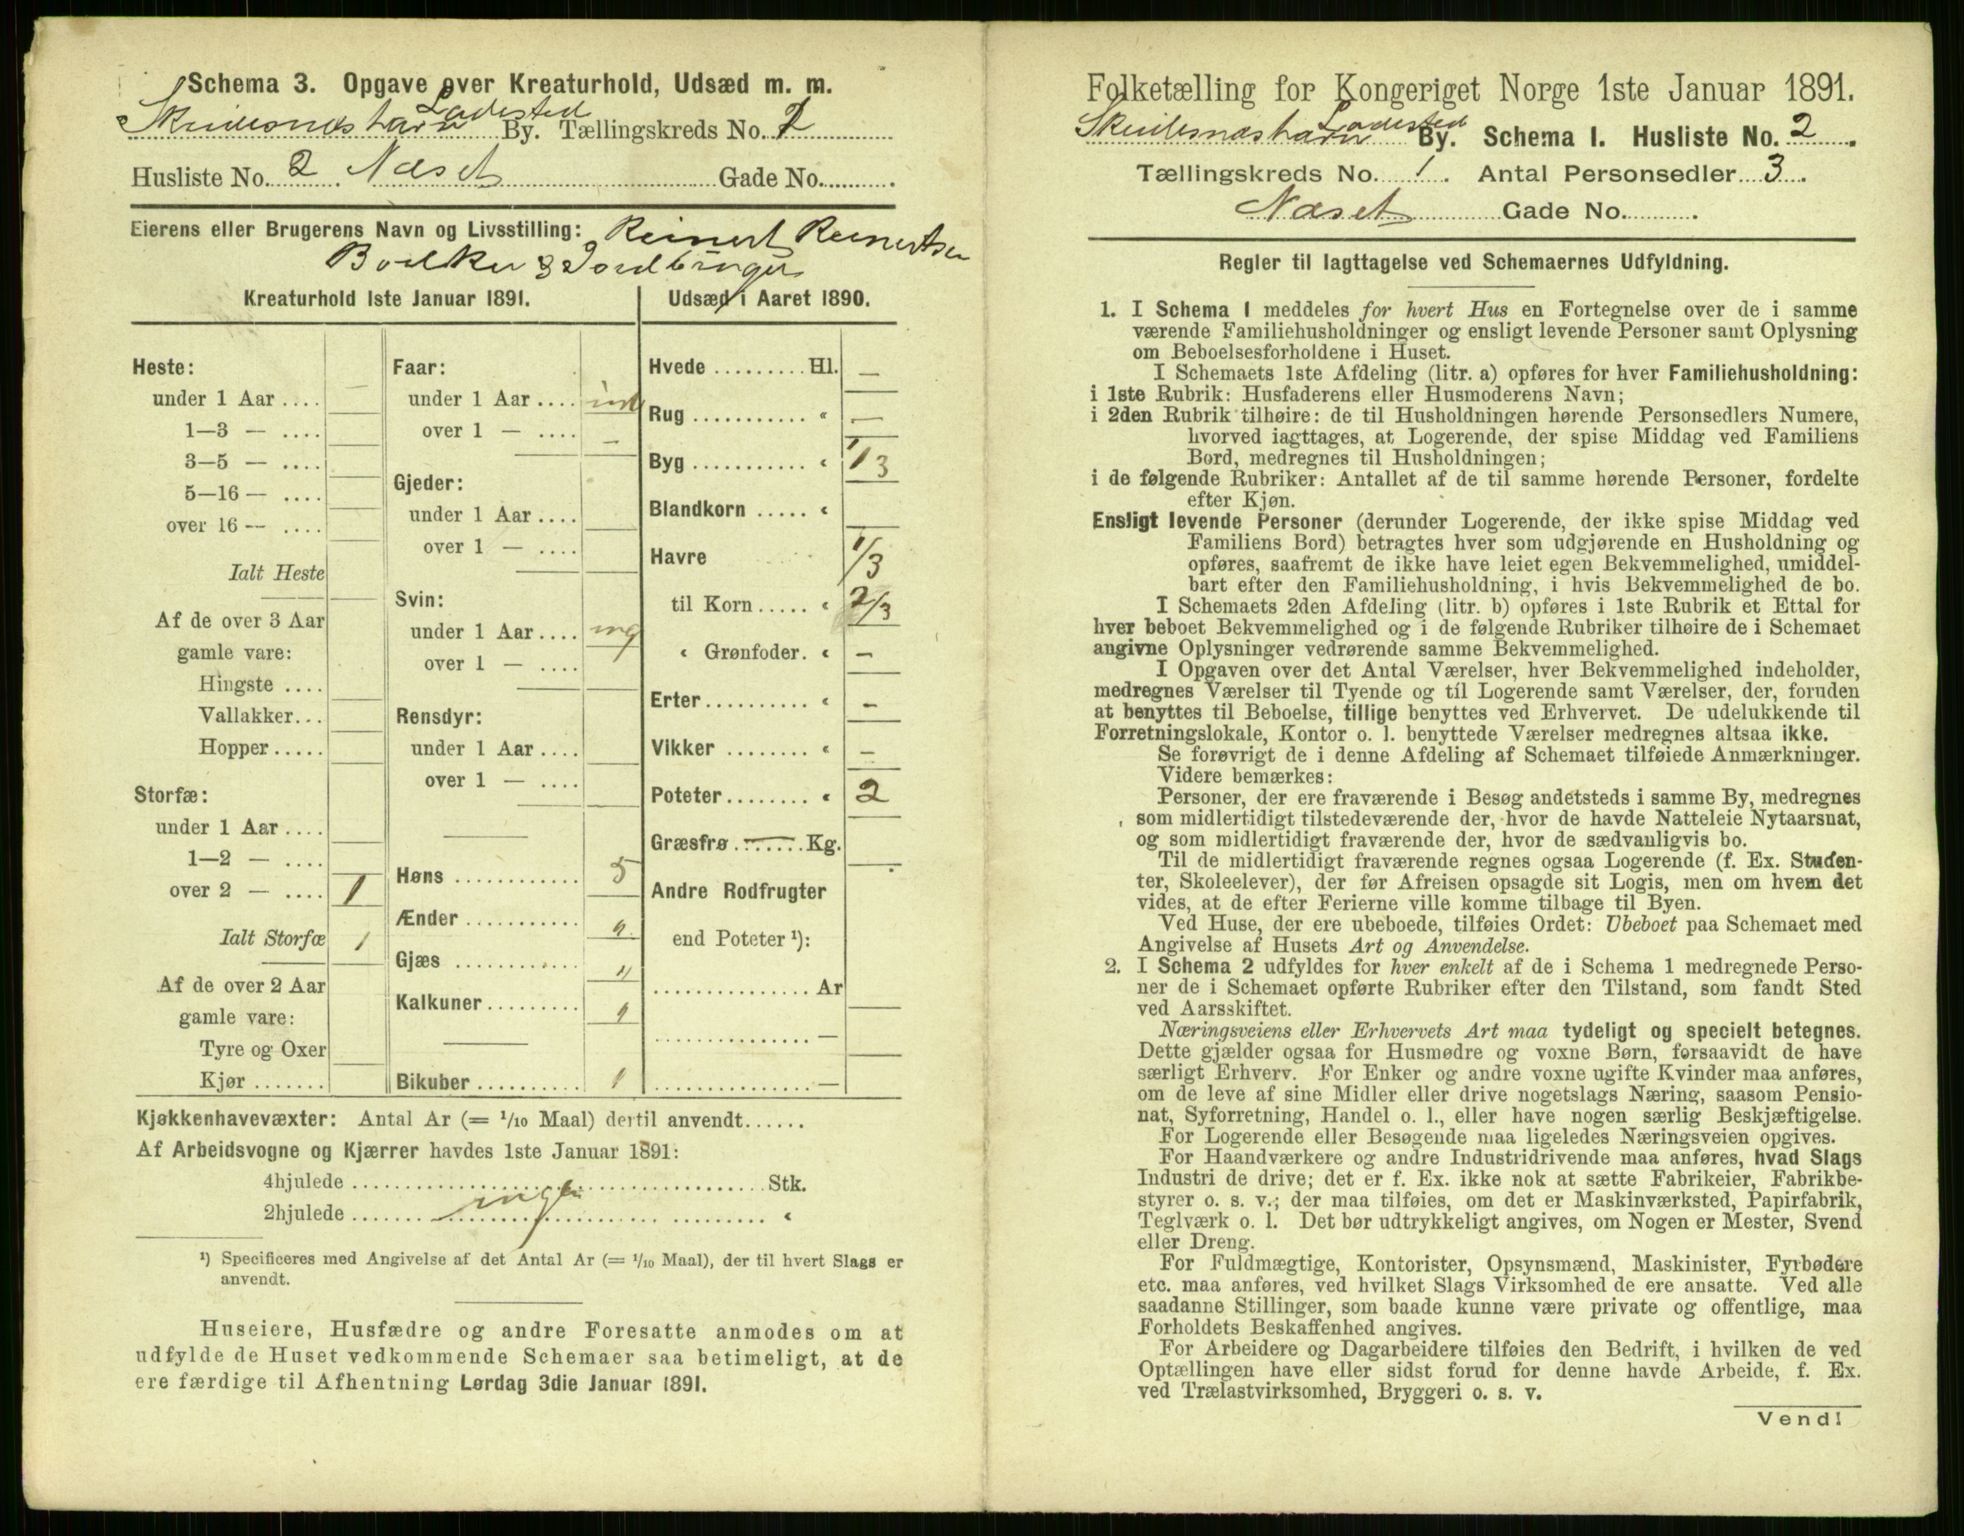 Schema 3. Opgave over Kreaturhold, Udsæd m. m.
Skudesneshavn Ladested By. Tællingskreds No. 1
Husliste No. 2 Næset Gade No.
Eierens eller Brugerens Navn og Livsstilling: Reinert Reinertsen
Bødker & Jordbruger
Kreaturhold 1ste Januar 1891.
Heste:
under 1 Aar .... —
1—3 — ....
3—5 — ....
5—16 — ....
over 16 — ....
Ialt Heste
Af de over 3 Aar
gamle vare:
Hingste ....
Vallakker...
Hopper .....
Storfæ:
under 1 Aar ....
1—2 — ....
over 2 — .... 1
Ialt Storfæ 1
Af de over 2 Aar
gamle vare:
Tyre og Oxer
Kjør .......
Faar:
under 1 Aar ....
over 1 — .... —
Gjeder:
under 1 Aar ....
over 1 — ....
Svin:
under 1 Aar .... ing
over 1 — ....
Rensdyr:
under 1 Aar ....
over 1 — ....
Høns ............ 5
Ænder ........... "
Gjæs ............ "
Kalkuner ......... "
Bikuber ..........
Udsæd i Aaret 1890.
Hvede ......... Hl. —
Rug ........... “ —
Byg ........... “ 1/3
Blandkorn ..... “
Havre 1/3
til Korn ..... “ 2/3
“ Grønfoder. “ —
Erter .......... “ —
Vikker ........ “ —
Poteter ........ “ 2
Græsfrø ....... Kg.
Andre Rodfrugter
end Poteter ¹):
............... Ar
............... —
............... —
Kjøkkenhavevæxter: Antal Ar (= 1/10 Maal) dertil anvendt......
Af Arbeidsvogne og Kjærrer havdes 1ste Januar 1891:
4hjulede ........................ Stk.
2hjulede ....... ingen ......... “
¹) Specificeres med Angivelse af det Antal Ar (= 1/10 Maal), der til hvert Slags er
anvendt.
Huseiere, Husfædre og andre Foresatte anmodes om at
udfylde de Huset vedkommende Schemaer saa betimeligt, at de
ere færdige til Afhentning Lørdag 3die Januar 1891.
Folketælling for Kongeriget Norge 1ste Januar 1891.
Skudesneshavn Ladested By. Schema I. Husliste No. 2
Tællingskreds No. 1. Antal Personsedler 3.
Næset Gade No.
Regler til Iagttagelse ved Schemaernes Udfyldning.
1. I Schema 1 meddeles for hvert Hus en Fortegnelse over de i samme
værende Familiehusholdninger og ensligt levende Personer samt Oplysning
om Beboelsesforholdene i Huset.
I Schemaets 1ste Afdeling (litr. a) opføres for hver Familiehusholdning:
i 1ste Rubrik: Husfaderens eller Husmoderens Navn;
i 2den Rubrik tilhøire: de til Husholdningen hørende Personsedlers Numere,
hvorved iagttages, at Logerende, der spise Middag ved Familiens
Bord, medregnes til Husholdningen;
i de følgende Rubriker: Antallet af de til samme hørende Personer, fordelte
efter Kjøn.
Ensligt levende Personer (derunder Logerende, der ikke spise Middag ved
Familiens Bord) betragtes hver som udgjørende en Husholdning og
opføres, saafremt de ikke have leiet egen Bekvemmelighed, umiddel-
bart efter den Familiehusholdning, i hvis Bekvemmelighed de bo.
I Schemaets 2den Afdeling (litr. b) opføres i 1ste Rubrik et Ettal for
hver beboet Bekvemmelighed og i de følgende Rubriker tilhøire de i Schemaet
angivne Oplysninger vedrørende samme Bekvemmelighed.
I Opgaven over det Antal Værelser, hver Bekvemmelighed indeholder,
medregnes Værelser til Tyende og til Logerende samt Værelser, der, foruden
at benyttes til Beboelse, tillige benyttes ved Erhvervet. De udelukkende til
Forretningslokale, Kontor o. l. benyttede Værelser medregnes altsaa ikke.
Se forøvrigt de i denne Afdeling af Schemaet tilføiede Anmærkninger.
Videre bemærkes:
Personer, der ere fraværende i Besøg andetsteds i samme By, medregnes
som midlertidigt tilstedeværende der, hvor de havde Natteleie Nytaarsnat,
og som midlertidigt fraværende der, hvor de sædvanligvis bo.
Til de midlertidigt fraværende regnes ogsaa Logerende (f. Ex. Studen-
ter, Skoleelever), der før Afreisen opsagde sit Logis, men om hvem det
vides, at de efter Ferierne ville komme tilbage til Byen.
Ved Huse, der ere ubeboede, tilføies Ordet: Ubeboet paa Schemaet med
Angivelse af Husets Art og Anvendelse.
2. I Schema 2 udfyldes for hver enkelt af de i Schema 1 medregnede Perso-
ner de i Schemaet opførte Rubriker efter den Tilstand, som fandt Sted
ved Aarsskiftet.
Næringsveiens eller Erhvervets Art maa tydeligt og specielt betegnes.
Dette gjælder ogsaa for Husmødre og voxne Børn, forsaavidt de have
særligt Erhverv. For Enker og andre voxne ugifte Kvinder maa anføres,
om de leve af sine Midler eller drive nogetslags Næring, saasom Pensio-
nat, Syforretning, Handel o. l., eller have nogen særlig Beskjæftigelse.
For Logerende eller Besøgende maa ligeledes Næringsveien opgives.
For Haandværkere og andre Industridrivende maa anføres, hvad Slags
Industri de drive; det er f. Ex. ikke nok at sætte Fabrikeier, Fabrikbe-
styrer o. s. v.; der maa tilføies, om det er Maskinværksted, Papirfabrik,
Teglværk o. l. Det bør udtrykkeligt angives, om Nogen er Mester, Svend
eller Dreng.
For Fuldmægtige, Kontorister, Opsynsmænd, Maskinister, Fyrbødere
etc. maa anføres, ved hvilket Slags Virksomhed de ere ansatte. Ved alle
saadanne Stillinger, som baade kunne være private og offentlige, maa
Forholdets Beskaffenhed angives.
For Arbeidere og Dagarbeidere tilføies den Bedrift, i hvilken de ved
Optællingen have eller sidst forud for denne havde Arbeide, f. Ex.
ved Trælastvirksomhed, Bryggeri o. s. v.
Vend!